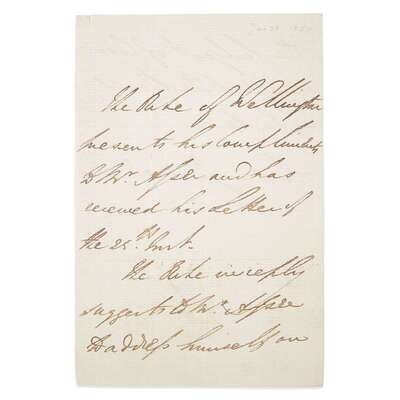 The Duke of Wellington
presents his Compliments
to Mr. and has
received his Letter of
the 25th Inst.
The Duke in reply
suggests to Mr.
to address himself on